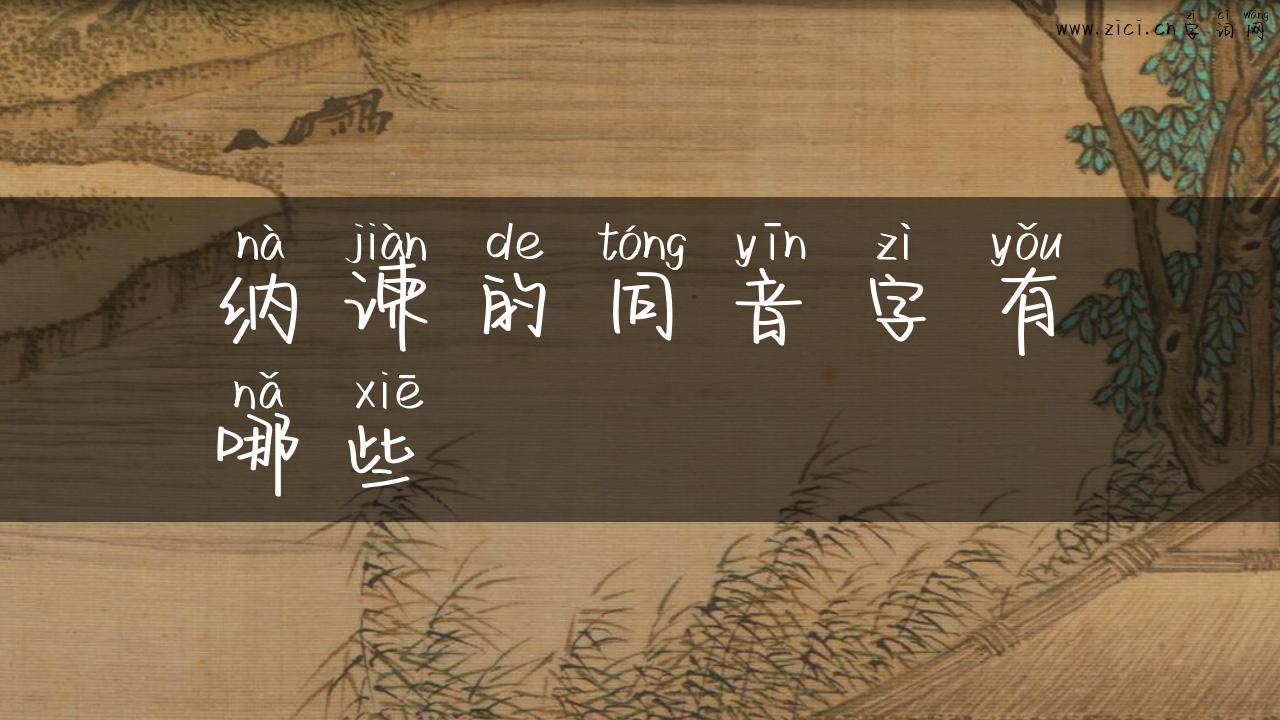 zì cí wǎng
www.zici.cn字词网
nà jiàn de tóng yīn zì yǒu
纳谏的同音字有
nǎ xiē
哪些